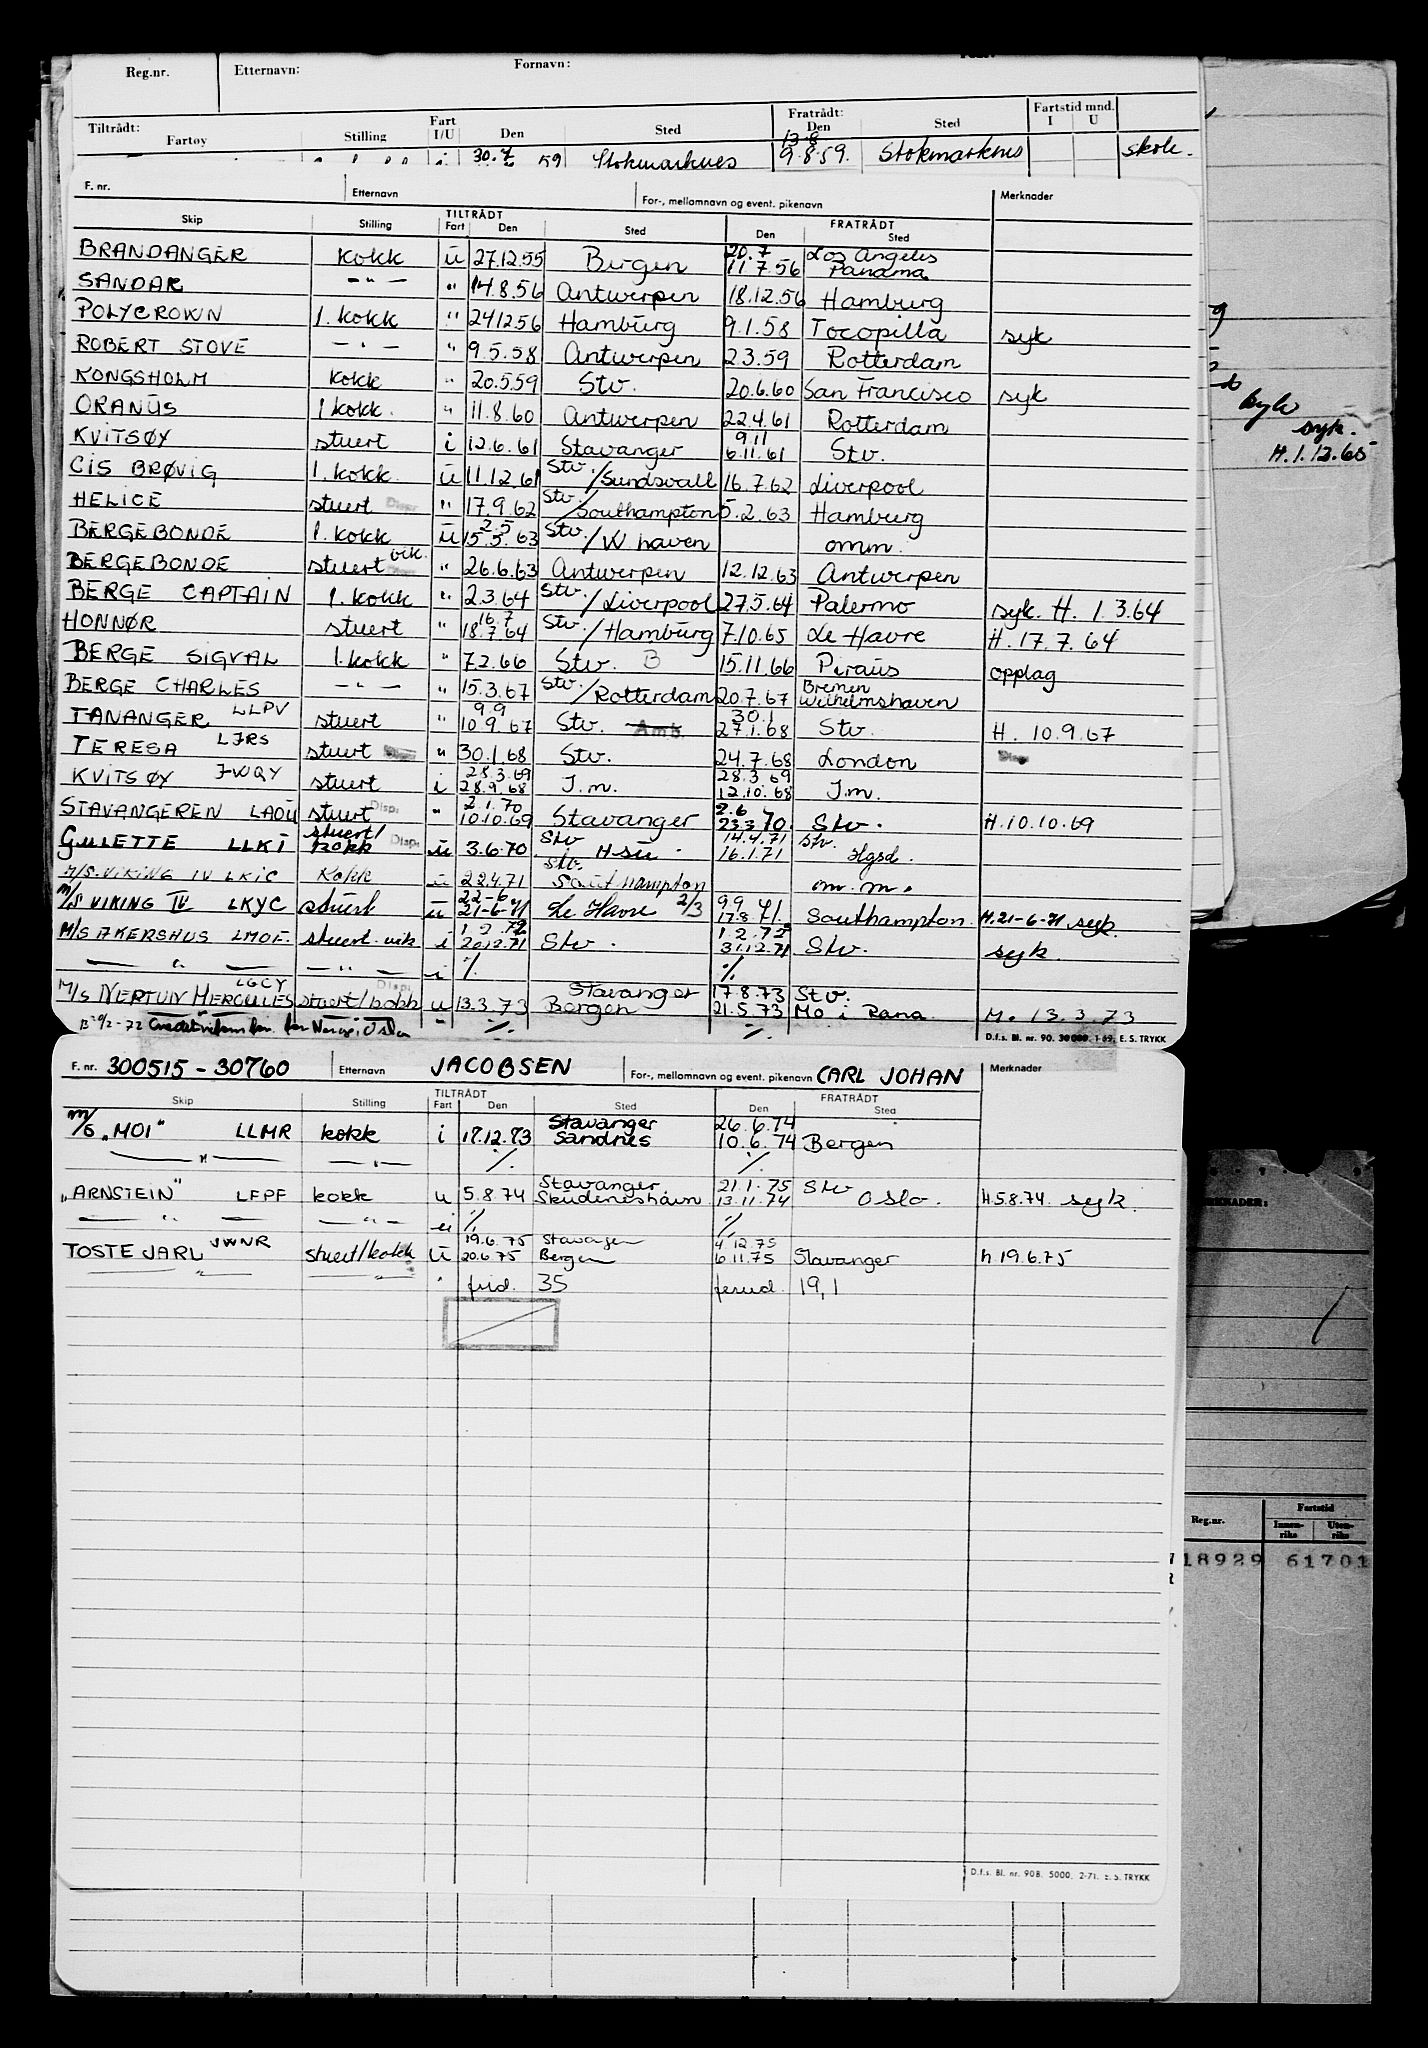 Reg.nr. Etternavn: Fornavn:
Tiltrådt: Fart Fratrådt: Fartstid mnd.
Fartøy Stilling I/U Den Sted Den Sted I U
13.8
30.7 59 Stokmarknes 9.8.59. Stokmarknes skole.
F. nr. Etternavn For-, mellomnavn og event. pikenavn Merknader
TILTRÅDT FRATRÅDT
Skip Stilling Fart Den Sted Den Sted
20.7 Los Angeles
BRANDANGER kokk u 27.12.55 Bergen 11.7.56 Panama
SANDAR -"- " 14.8.56 Antwerpen 18.12.56 Hamburg
POLYCROWN 1. kokk " 24.12.56 Hamburg 9.1.58 Tocopilla syk
ROBERT STOVE -"- " 9.5.58 Antwerpen 2.3.59 Rotterdam
KONGSHOLM kokk " 20.5.59 Stv. 20.6.60 San Francisco syk
ORANUS 1 kokk. " 11.8.60 Antwerpen 22.4.61 Rotterdam
9.11
KVITSØY stuert i 12.6.61 Stavanger 6.11.61 Stv.
CIS BRØVIG 1. kokk u 11.12.61 Stv./Sundsvall 16.7.62 Liverpool
HELICE stuert Disp. " 17.9.62 Stv./Southampton 5.2.63 Hamburg
2.5
BERGEBONDE 1. kokk u 15.5.63 Stv./W haven omm.
BERGEBONDE stuert vik. " 26.6.63 Antwerpen 12.12.63 Antwerpen
BERGE CAPTAIN 1. kokk " 2.3.64 Stv./Liverpool 27.5.64 Palermo syk. H. 1.3.64
16.7
HONNØR stuert " 18.7.64 Stv./Hamburg 7.10.65 Le Havre H. 17.7.64
BERGE SIGVAL 1. kokk " 7.2.66 Stv. B 15.11.66 Piraus opplag
Bremen
BERGE CHARLES -"- " 15.3.67 Stv./Rotterdam 20.7.67 Wilhelmshaven
9.9 30.1
TANANGER LLPV stuert " 10.9.67 Stv. Amb. 27.1.68 Stv. H. 10.9.67
TERESA LJRS stuert " 30.1.68 Stv. 24.7.68 London Disp
28.3.69 28.3.69
KVITSØY JWQY stuert i 28.9.68 I.m. 12.10.68 I.m.
2.1.70 2.6
STAVANGEREN LAOU stuert Disp. " 10.10.69 Stavanger 23.3 70. Stv. H.10.10.69
stuert/ Stv 14.4.71 Stv.
GULLETTE LLKI kokk Disp. u 3.6.70 Hsu. 16.1.71 Hgsd.
Stv.
M/S. VIKING IV LKIC Kokk u 22.4.71 Southampton om.m.
22-6 9.9
M/S VIKING IV LKYC stuert u 21-6-71 Le Havre 2/3 17.8.71. Southampton. H.21-6-71 syk.
1.2.72 1.2.72
M/S AKERSHUS LMOE. stuert. vik i 20.12.71 Stv. 31.12.71 Stv. syk.
— " — — " — i % %
LGCY Disp. Stavanger 17.8.73 Stv.
M/S NEPTUN HERCULES stuert/kokk u 13.3.73 Bergen 21.5.73 Mo i Rana M. 13.3.73
" % %
D.f.s. Bl. nr. 90. 30 000. 1-69. E. S. TRYKK
F. nr. 300515-30760 Etternavn JACOBSEN For-, mellomnavn og event. pikenavn CARL JOHAN Merknader
TILTRÅDT FRATRÅDT
Skip Stilling Fart Den Sted Den Sted
Stavanger 26.6.74
M/S „MOI" LLMR kokk i 17.12.73 Sandnes 10.6.74 Bergen
— " — — " — % %
Stavanger 21.1.75 Stv
„ARNSTEIN" LFPF kokk u 5.8.74 Skudeneshavn 13.11.74 Oslo. H.5.8.74. syk.
— " — — " — % %
JWNR 19.6.75 Stavanger 4.12.75
TOSTE JARL stuert/kokk U 20.6.75 Bergen 6.11.75 Stavanger h 19.6.75
— " — — " — " frid. 35 ferud. 19,1
D.f.s. Bl. nr. 90B. 5000. 2-71. E. S. TRYKK
syk.
H.1.12.65
MERKNADER:
Reg.nr. Fartstid
Innen-riks Uten-riks
18929 61701